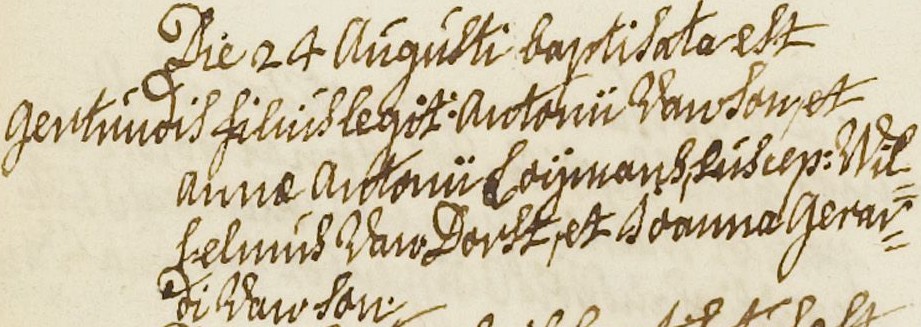 Die 24 Augusti baptisata est
Gertrudis filius legit: Antonii Van Son, et
Annæ Antonii Loijmans, suscep: Wil=
helmus Van Dorst, et Joanna Gerar=
di Van Son